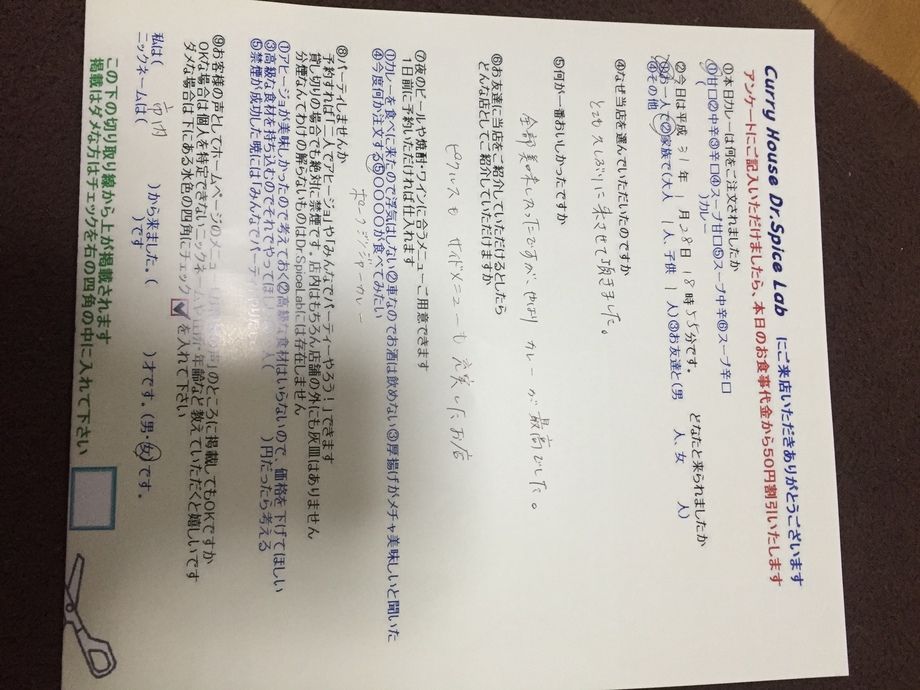 Curry House Dr.Spice Lab にご来店いただきありがとうございます
アンケートにご記入いただけましたら、本日のお食事代金から50円割引いたします
①本日カレーは何をご注文されましたか
①甘口②中辛③辛口④スープ甘口⑤スープ中辛⑥スープ辛口
( )カレー
②今日は平成 31 年 1 月 28 日 18 時 55 分です。 どなたと来られましたか
①お一人で②家族で(大人 1 人、子供 1 人)③お友達と(男 人、女 人)
④その他
④なぜ当店を選んでいただいたのですか
とても久しぶりに来させて頂きました。
⑤何が一番おいしかったですか
全部美味しかったですが、やはり カレー が 最高でした。
⑥お友達に当店をご紹介していただけるとしたら
どんな店としてご紹介していただけますか
ピクルスも サイドメニューも 充実したお店
⑦夜のビールや焼酎・ワインに合うメニューご用意できます
1日前に予約いただければ仕入れます
①カレーを食べに来たので浮気はしない②車なのでお酒は飲めない③厚揚げがメチャ美味しいと聞いた
④今度何か注文する⑤〇〇〇〇が食べてみたい
ポークジンジャーカレー
⑧パーティしませんか
予約すれば「二人でアヒージョ」や「みんなでパーティーやろう!」できます
貸し切りの場合でも絶対に禁煙です。店内はもちろん店舗の外にも灰皿はありません
分煙なんてわけの解らないものはDr.SpiceLabには存在しません
①アヒージョが美味しかったので考えておく②高級な食材はいらないので、価格を下げてほしい
③高級な食材を持ち込むのでそれでやってほし ( )円だったら考える
⑤禁煙が成功した晩には「みんなでパーテ
⑨お客様の声としてホームページのメニュー の声」のところに掲載してもOKですか
OKな場合は個人を特定できないニックネームや 年齢など教えていただくと嬉しいです
ダメな場合は下にある水色の四角にチェック を入れて下さい
私は( 市内 )から来ました。( )才です。(男・女)です。
ニックネームは( )です。
この下の切り取り線から上が掲載されます
掲載はダメな方はチェックを右の四角の中に入れて下さい